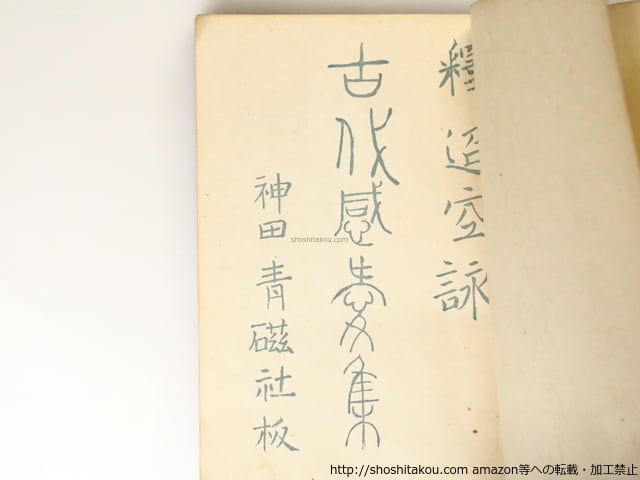 釋迢空詠
古代感愛集
神田 青磁社板
shoshitakou.com
http://shoshitakou.com amazon等への転載・加工禁止